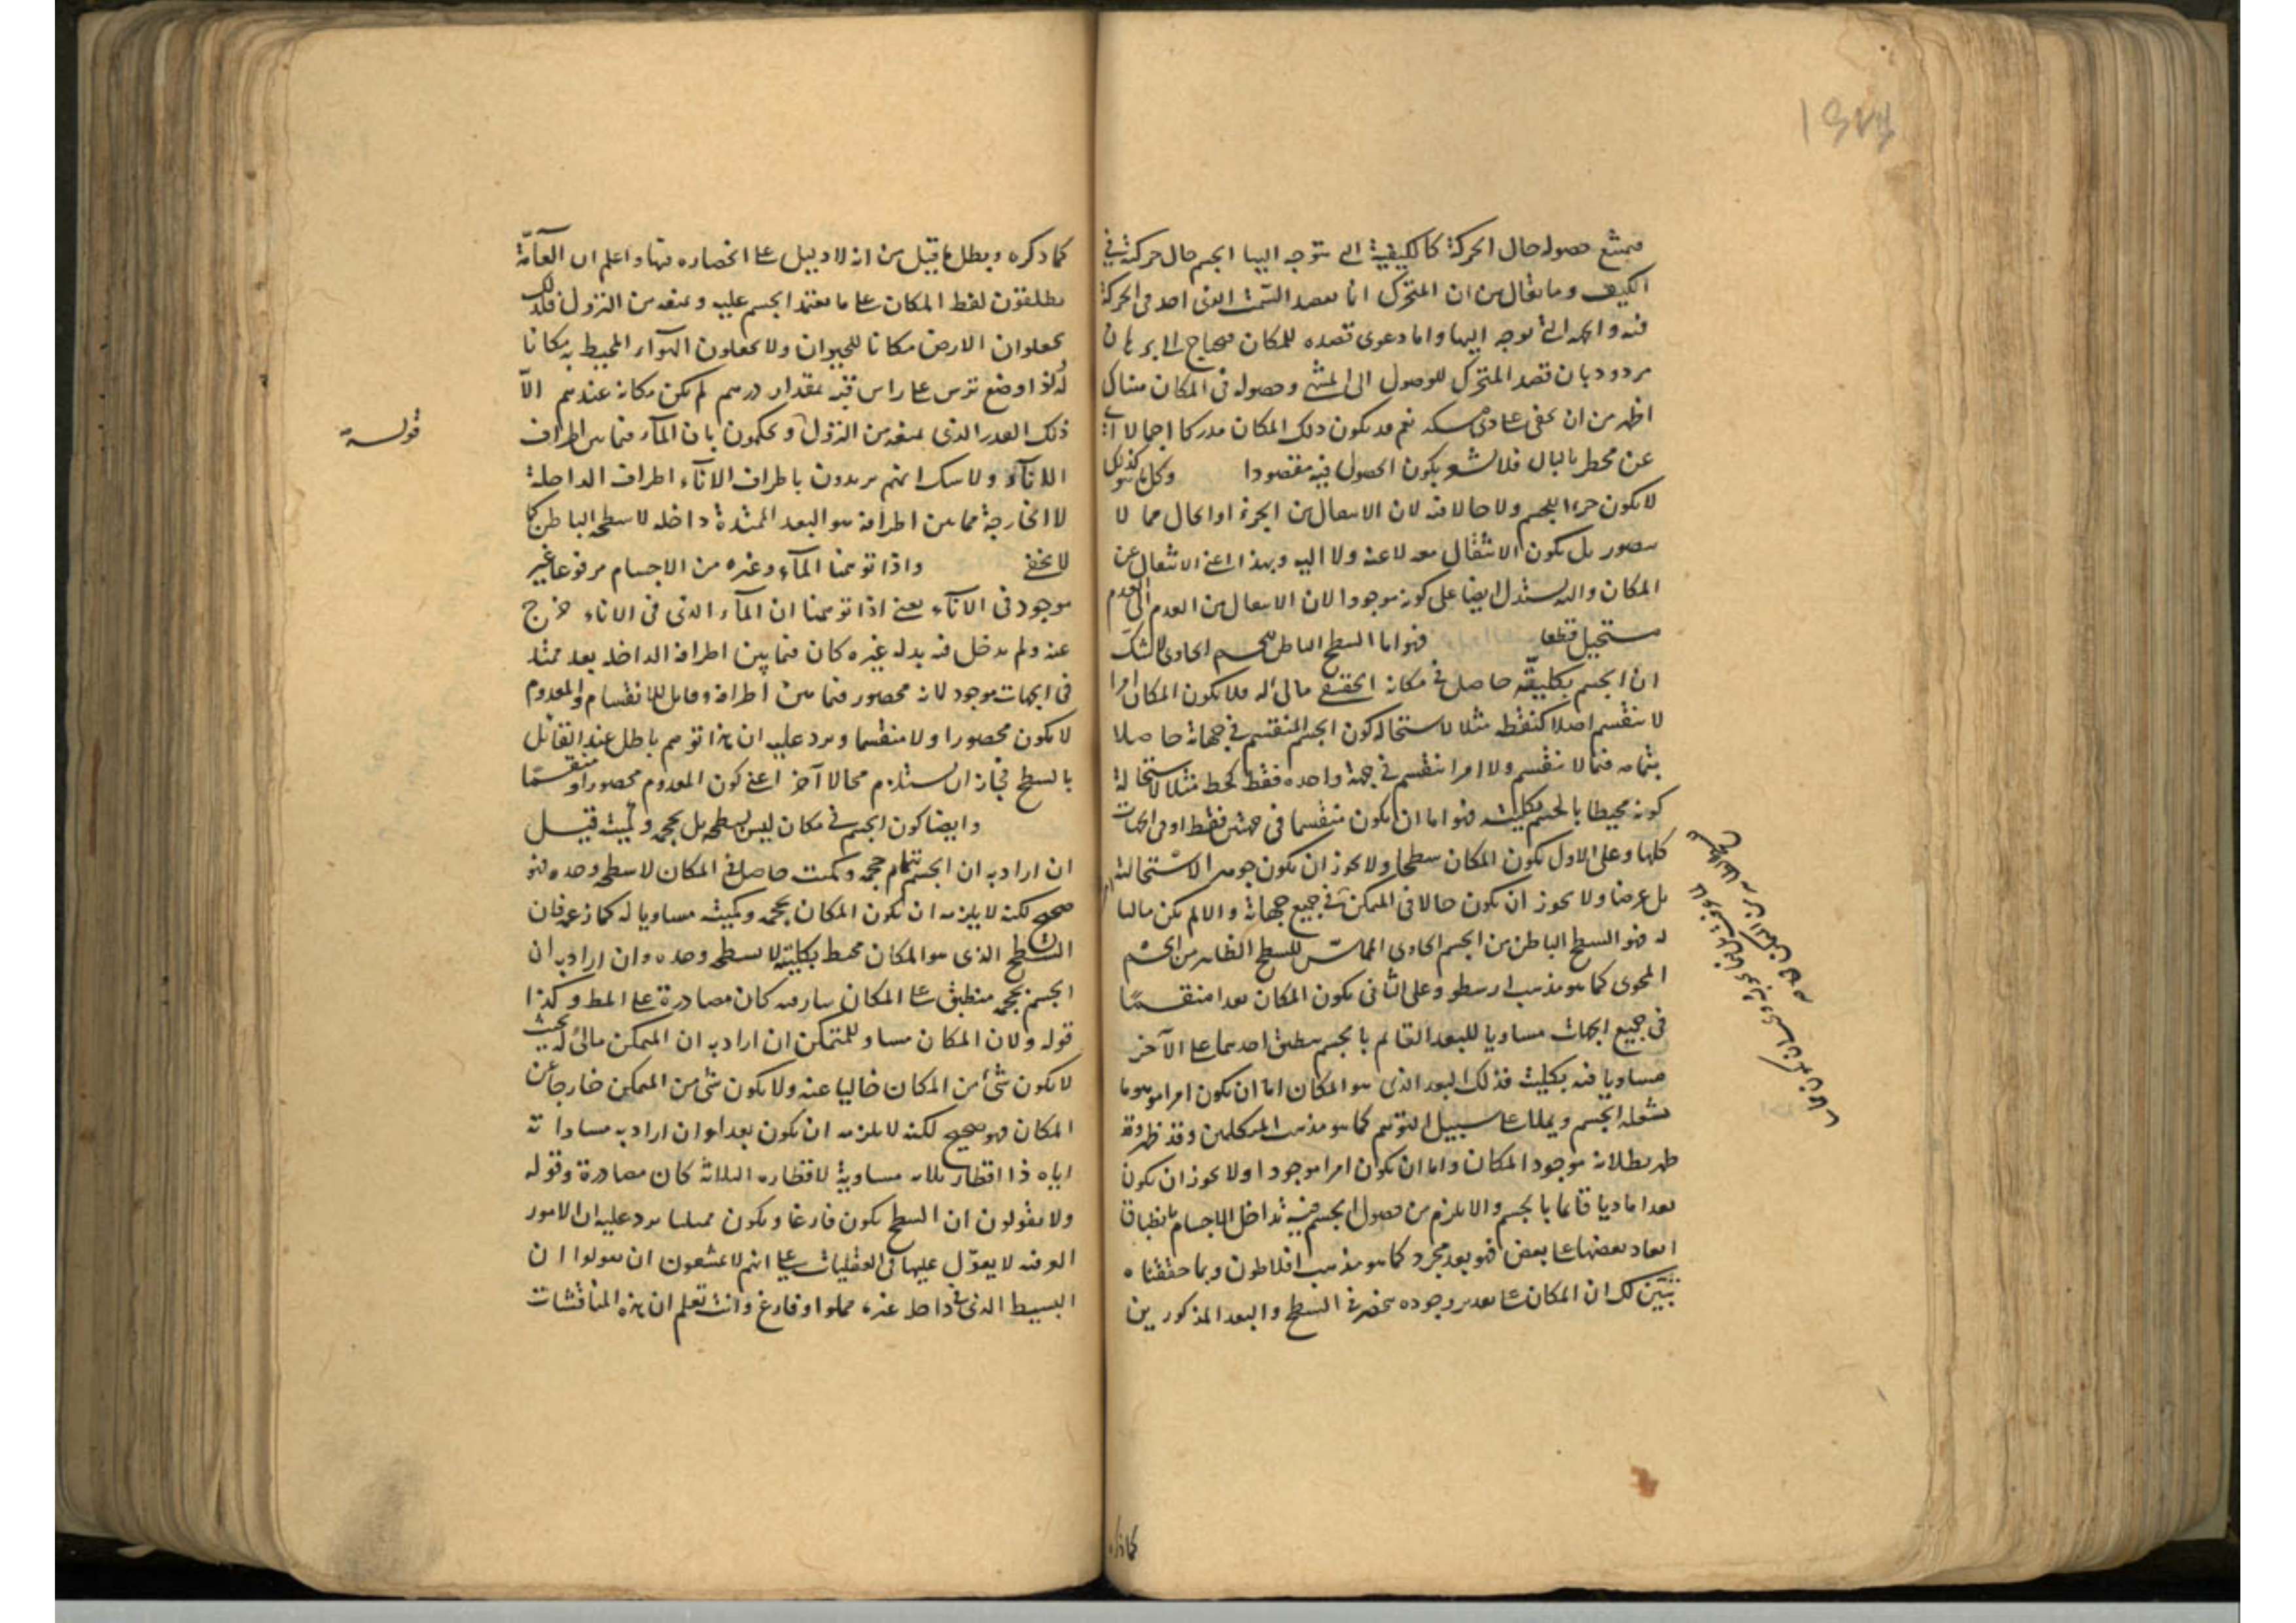 فيمتنع حصوله حال الحركة كالكيفية التي يتوجه اليها الجسم حال حركته في
الكيف وما يقال من ان المتحرك انما يقصد السمت الذي اخذ في الحركة
فيه والجهة التي توجه اليها واما دعوى قصده للمكان فيحتاج الى برهان
مردود بان قصد المتحرك للوصول الى المنتهى وحصوله في المكان هناك
اظهر من ان يخفى على ذي مسكة نعم قد يكون ذلك المكان مدركا اجمالا
عن مخطر بالبال فلا يشعر بكون الحصول فيه مقصودا وكل ما هو كذلك
لا يكون جزءا للجسم ولا حالا فيه لان الانتقال من الجزء او الحال مما لا
يتصور بل يكون الانتقال معه لا عنه ولا اليه وبهذا اعني الانتقال عن
المكان واليه يستدل ايضا على كونه موجودا لان الانتقال من العدم الى العدم
مستحيل قطعا فهو اما السطح الباطن للجسم الحاوي لا شك
ان الجسم بكليته حاصل في مكانه الحقيقي مالئ له فلا يكون المكان امرا
لا ينقسم اصلا كنقطة مثلا لاستحالة كون الجسم المنقسم في جهاته حاصلا
بتمامه فيما لا ينقسم ولا امرا ينقسم في جهة واحدة فقط كخط مثلا لاستحالة
كونه محيطا بالجسم بكليته فهو اما ان يكون منقسما في جهتين فقط او في الجهات
كلها وعلى الاول يكون المكان سطحا ولا يجوز ان يكون جوهرا لاستحالته
بل عرضا ولا يجوز ان يكون حالا في المتمكن في جميع جهاته والا لم يكن مالئا
له فهو السطح الباطن من الجسم الحاوي المماس للسطح الظاهر من الجسم
المحوى كما هو مذهب ارسطو وعلى الثاني يكون المكان بعدا منقسما
في جميع الجهات مساويا للبعد القائم بالجسم ينطبق احدهما على الآخر
مساويا فيه بكليته فذلك البعد الذي هو المكان اما ان يكون امرا موهوما
يشغله الجسم ويملأه على سبيل التوهم كما هو مذهب المتكلمين وقد
ظهر بطلانه موجود المكان واما ان يكون امرا موجودا ولا يجوز ان يكون
بعدا ماديا قائما بالجسم والا يلزم من حصول الجسم فيه تداخل الاجسام بانطباق
ابعاد بعضها على بعض فهو بعد مجرد كما هو مذهب افلاطون وبما حققناه
تبين لك ان المكان على تقدير وجوده منحصر في السطح والبعد المذكورين
كما ذكره
كما ذكره وبطل ما قيل من انه لا دليل على انحصاره فيها واعلم ان العامة
يطلقون لفظ المكان على ما يعتمد الجسم عليه ويمنعه من النزول فلذلك
يجعلون الارض مكانا للحيوان ولا يجعلون الهواء المحيط به مكانا
له فلو وضع ترس على راس قبة بمقدار درهم لم يكن مكانه عندهم الا
ذلك القدر الذي يمنعه من النزول ويحكمون بان الماء فيما بين اطراف
الاناء ولا شك انهم يريدون باطراف الاناء اطراف الداخلة
لا الخارجة فما بين اطرافه هو البعد الممتد في داخله لا سطحه الباطن كما
لا يخفى واذا توهمنا الماء وغيره من الاجسام مرفوعا غير
موجود في الاناء يعني اذا توهمنا ان الماء الذي في الاناء خرج
عنه ولم يدخل فيه بدله غيره كان فيما بين اطرافه الداخلة بعد ممتد
في الجهات موجود لانه محصور فيما بين اطرافه وقابل للانقسام والمعدوم
لا يكون محصورا ولا منقسما ويرد عليه ان هذا توهم باطل عند القائل
بالسطح فجاز ان يستلزم محالا آخر اعني كون المعدوم محصورا ومنقسما
وايضا كون الجسم في مكان ليس بسطحه بل بحجمه وكميته قيل
ان اراد به ان الجسم بتمام حجمه وكميته حاصل في المكان لا سطحه وحده فهو
صحيح لكنه لا يلزمه ان يكون المكان بحجمه وكميته مساويا له كما زعمه فان
السطح الذي هو المكان محيط بكليته لا بسطحه وحده وان اراد به ان
الجسم بحجمه منطبق على المكان سار فيه كان مصادرة على المط وكذا
قوله ولان المكان مساو للمتمكن ان اراد به ان المتمكن مالئ له بحيث
لا يكون شئ من المكان خاليا عنه ولا يكون شئ من المتمكن خارجا عن
المكان فهو صحيح لكنه لا يلزمه ان يكون بعدا وان اراد به مساواته
اياه ذا اقطار ثلاثة مساوية لاقطاره الثلاثة كان مصادرة وقوله
ولا يقولون ان السطح يكون فارغا ويكون ممتليا يرد عليه ان الامور
العرفية لا يعول عليها في العقليات على انهم لا يمتنعون ان يقولوا ان
البسيط الذي في داخله غيره مملو او فارغ وانت تعلم ان هذه المناقشات
قوله